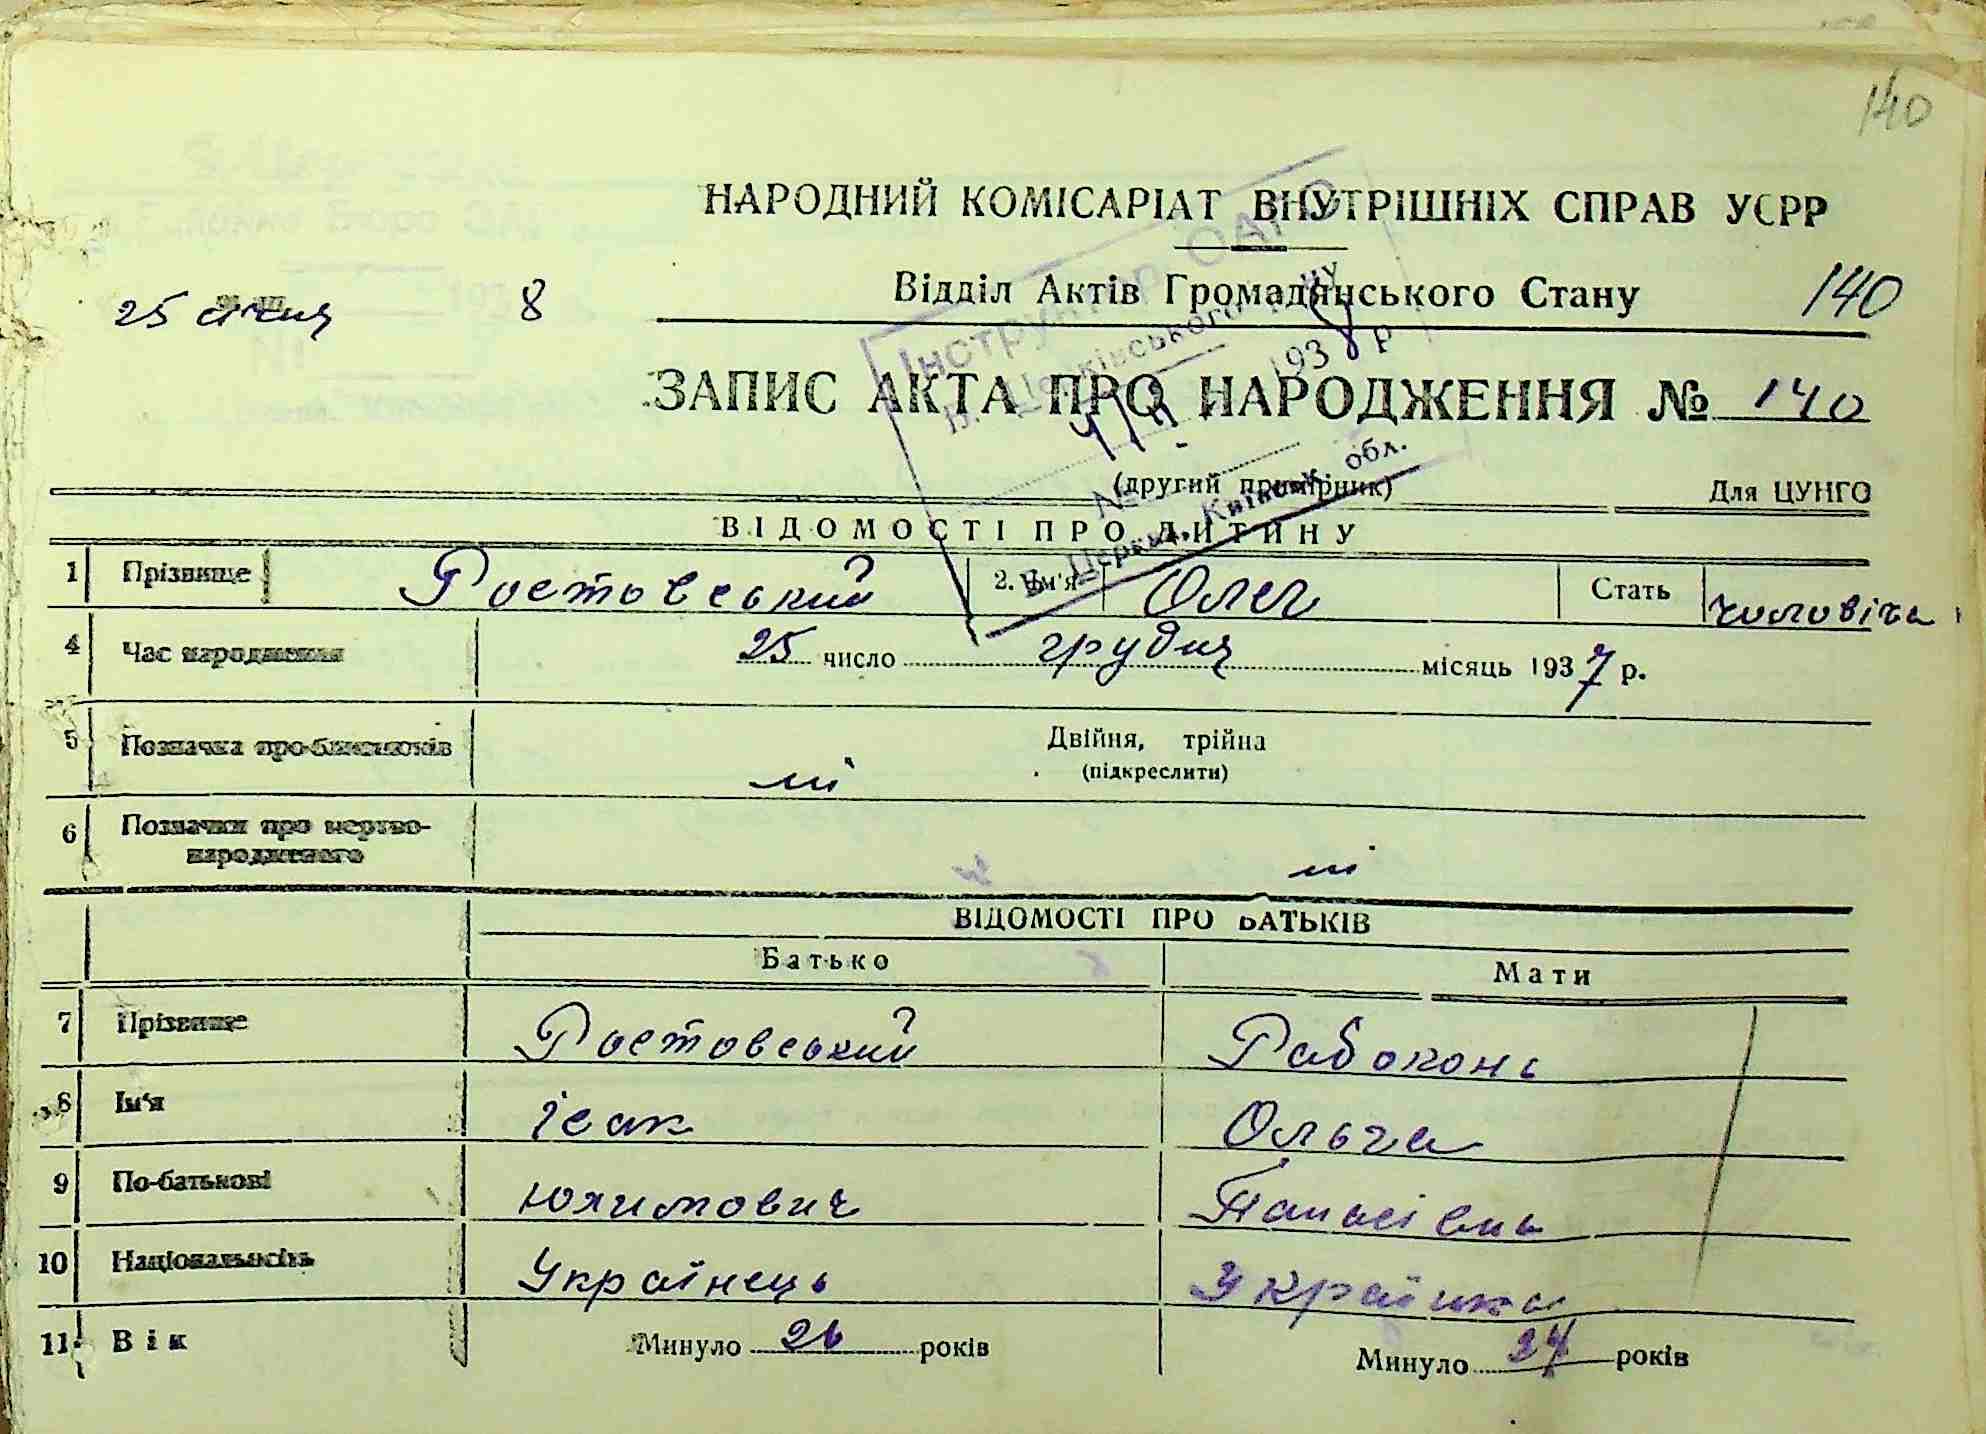 140
НАРОДНИЙ КОМІСАРІАТ ВНУТРІШНІХ СПРАВ УСРР
25 січня 1938
Відділ Актів Громадянського Стану 140
ЗАПИС АКТА ПРО НАРОДЖЕННЯ № 140
Інструктор ОАГС
Б. Церківського
1938 р
№
Б. Церква, Київськ. обл.
(другий примірник) Для ЦУНГО
ВІДОМОСТІ ПРО ДИТИНУ
1 Прізвище Ростовський 2. Ім'я Олег Стать чоловіча
4 Час народження 25 число грудня місяць 1937 р.
5 Позначка про близнюків Двійня, трійна
(підкреслити)
ні
6 Позначки про мертво-
народженого ні
ВІДОМОСТІ ПРО БАТЬКІВ
Батько Мати
7 Прізвище Ростовський Рабоконь
8 Ім'я Ісак Ольга
9 По-батькові Юхимович
10 Національність Українець Українка
11 Вік Минуло 26 років Минуло 24 років